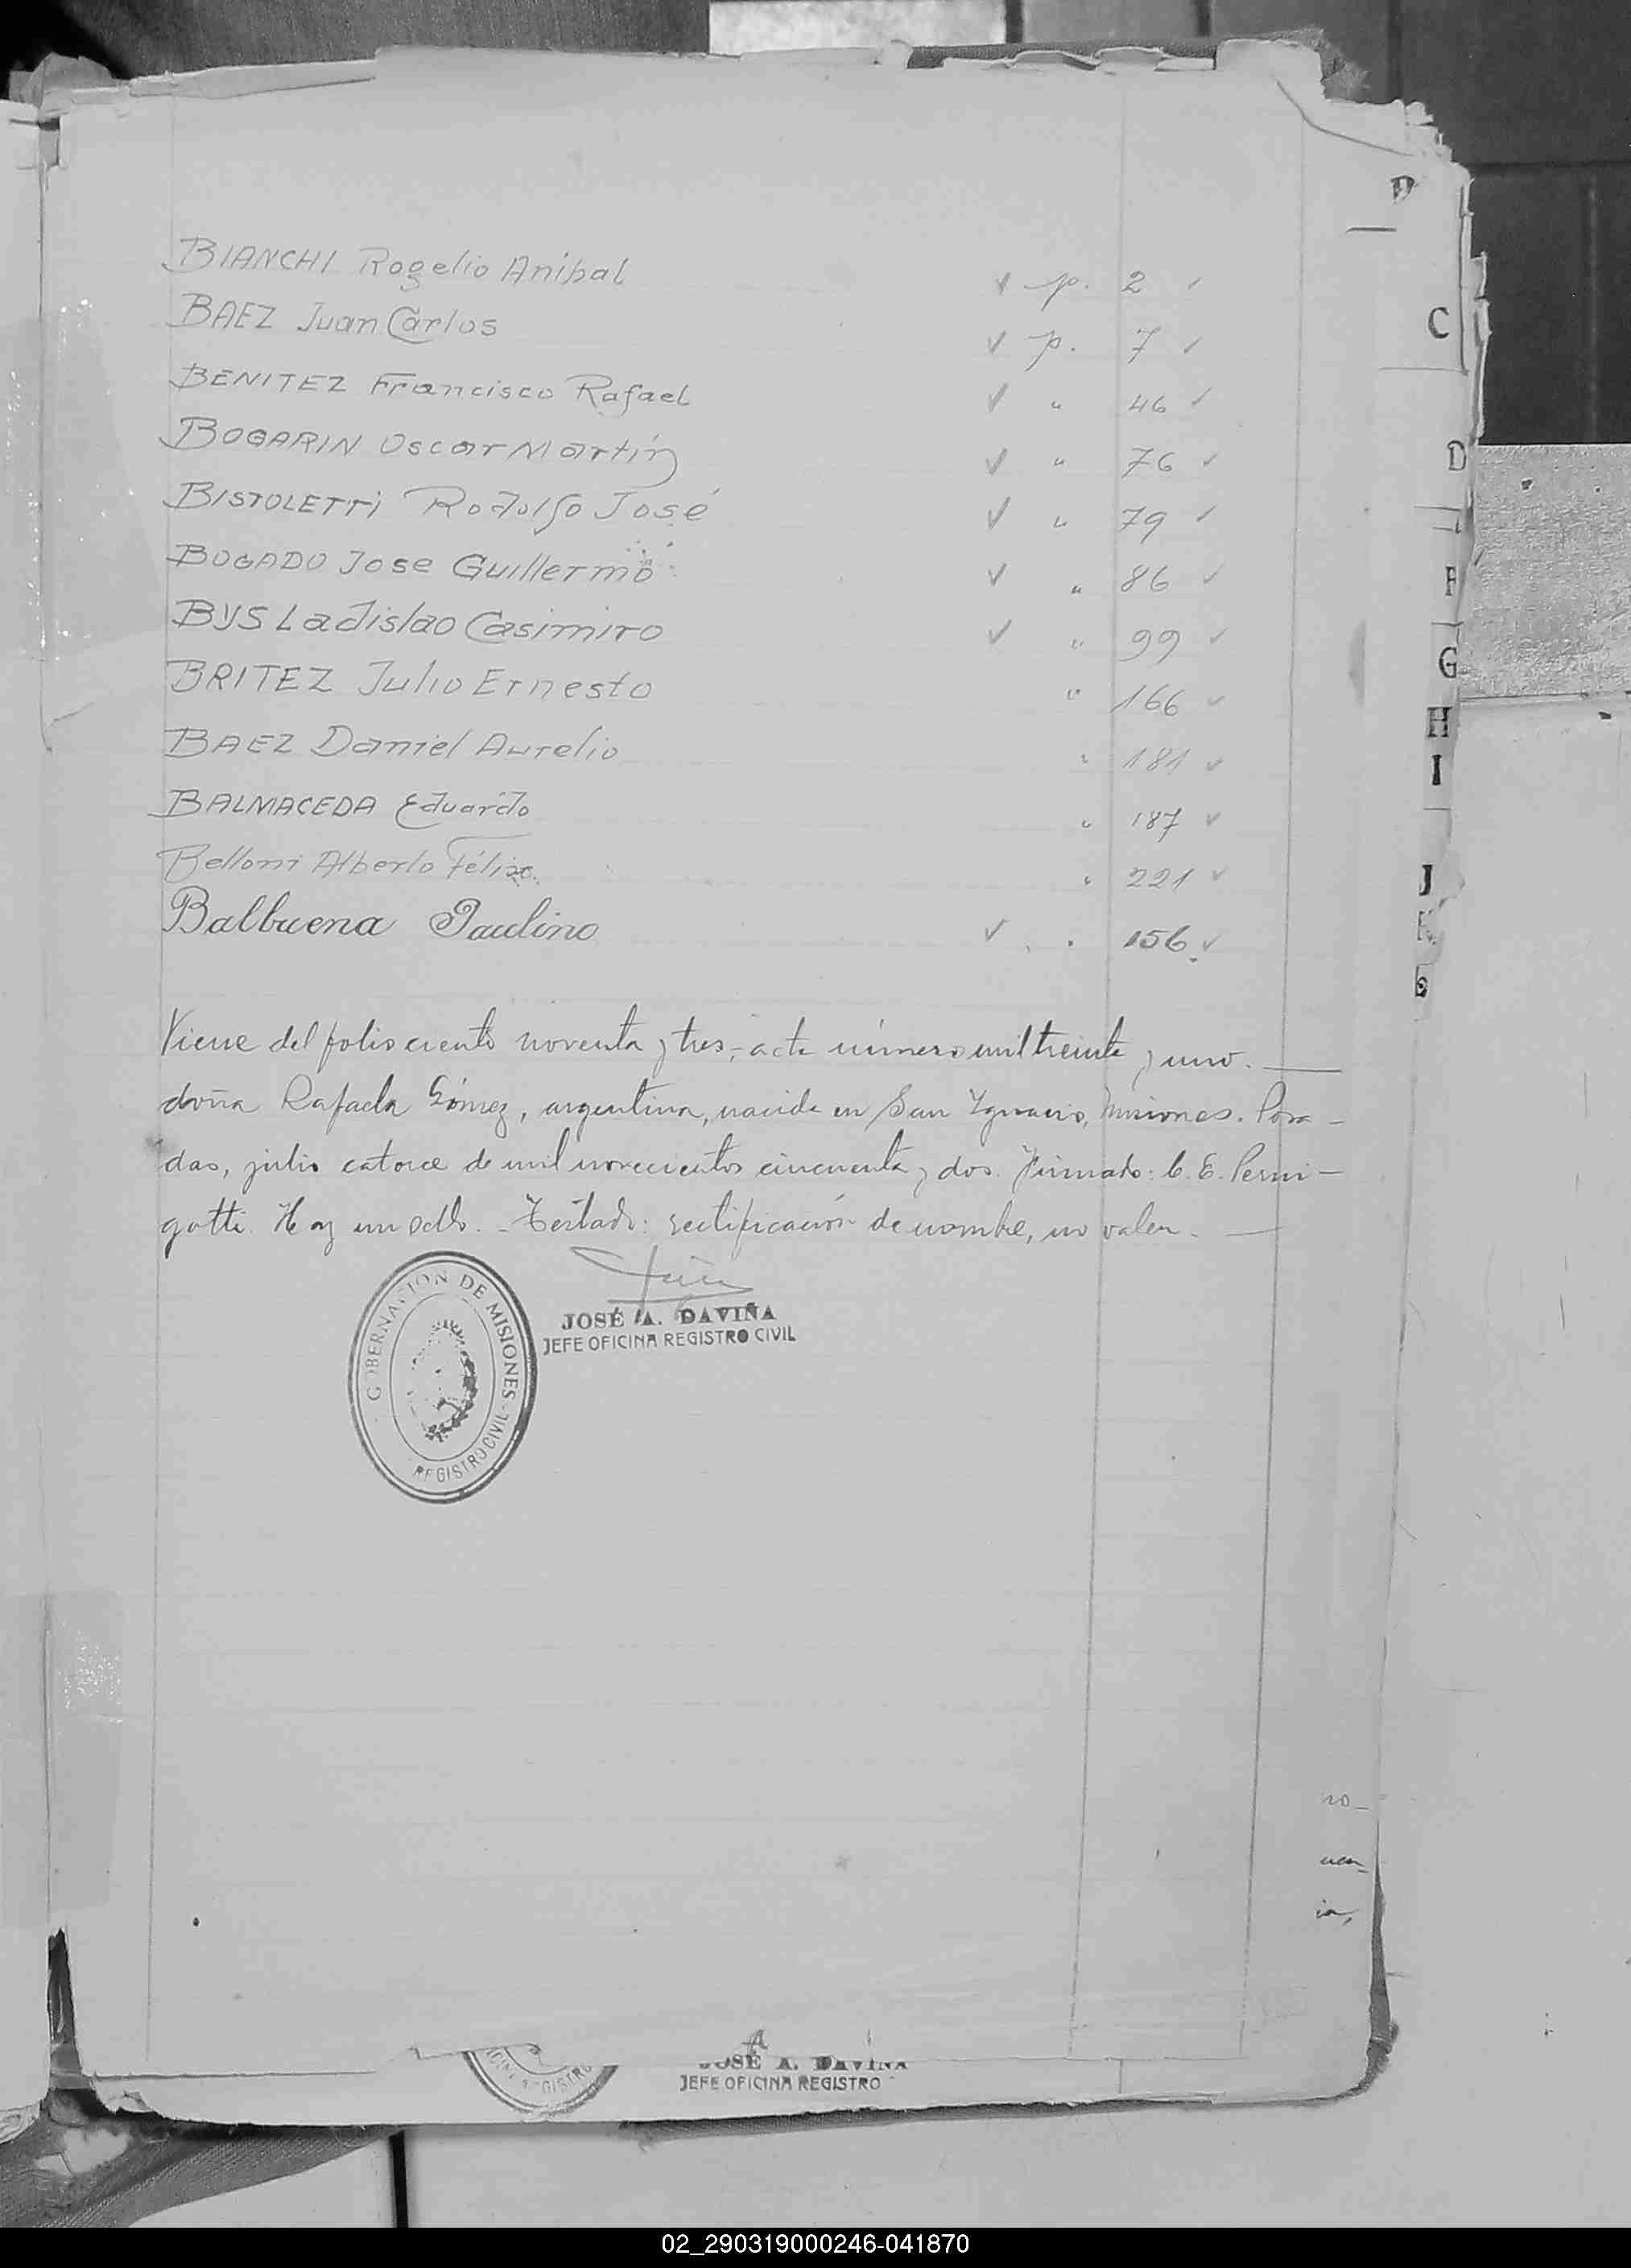 BIANCHI Rogelio Anibal ✓ p. 2 ✓
BAEZ Juan Carlos ✓ p. 7 ✓
BENITEZ Francisco Rafael ✓ " 46 ✓
BOGARIN Oscar Martín ✓ " 76 ✓
BISTOLETTi Rodolfo José ✓ " 79 ✓
BOGADO Jose Guillermo ✓ " 86 ✓
BYS Ladislao Casimiro ✓ " 99 ✓
BRITEZ Julio Ernesto " 166 ✓
BAEZ Daniel Aurelio " 181 ✓
BALMACEDA Eduardo " 187 ✓
Belloni Alberto Félix " 221 ✓
Balbuena Paulino ✓ " 156 ✓
Viene del folio ciento noventa y tres, acta número mil treinta y uno.
doña Rafaela Gómez, argentina, nacida en San Ygnacio, Misiones. Posa-
das, julio catorce de mil novecientos cincuenta y dos. Firmado: C. E. Perni-
gotti. Hay un sello. - Testado: rectificación de nombre, no valen.
GOBERNACION DE MISIONES
REGISTRO CIVIL
JOSÉ A. DAVIÑA
JEFE OFICINA REGISTRO CIVIL
C
D
F
G
H
I
J
K
no-
ia,
JOSÉ A. DAVIÑA
JEFE OFICINA REGISTRO
02_290319000246-041870